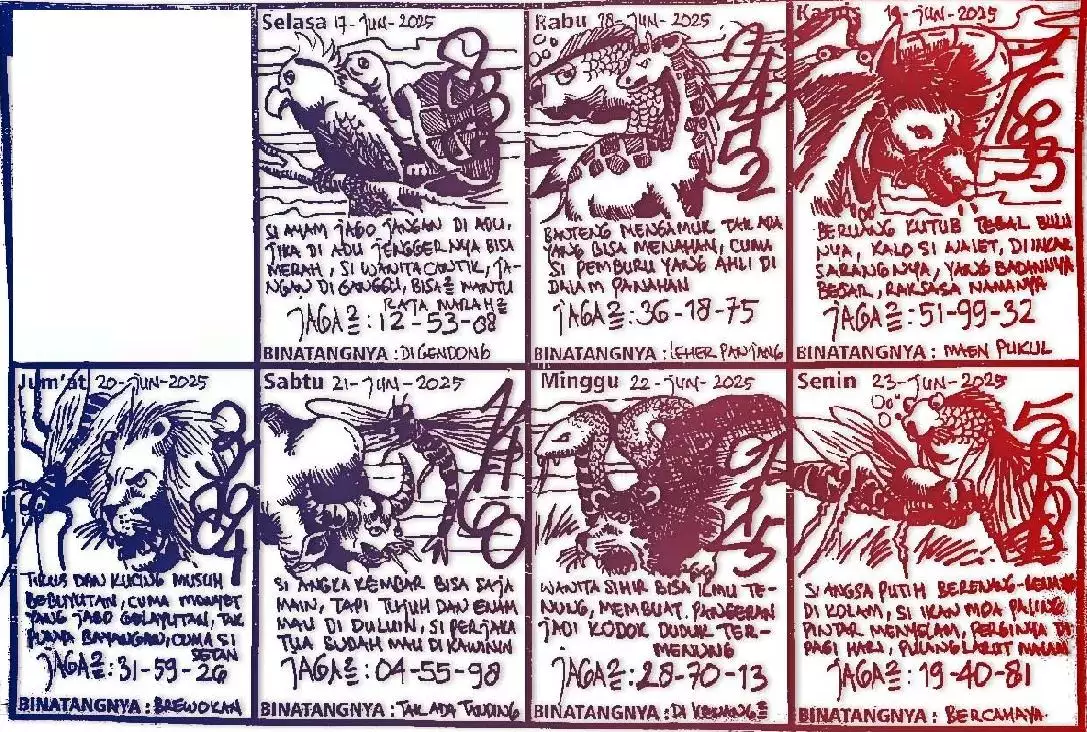 Selasa 17-JUN-2025
SI AYAM JAGO JANGAN DI ADU,
JIKA DI ADU JENGGERNYA BISA
MERAH, SI WANITA CANTIK, JA-
NGAN DI GANGGU, BISA2 MANTU
RATA MARAH2
JAGA2: 12-53-08
BINATANGNYA: DIGENDONG
Rabu 18-JUN-2025
BANTENG MENGAMUK TAK ADA
YANG BISA MENAHAN, CUMA
SI PEMBURU YANG AHLI DI
DALAM PANAHAN
JAGA2: 36-18-75
BINATANGNYA: LEHER PANJANG
Kamis 19-JUN-2025
BERUANG KUTUB TEBAL BULU
NYA, KALO SI WALET, DIINCAR
SARANGNYA, YANG BADANNYA
BESAR, RAKSASA NAMANYA
JAGA2: 51-99-32
BINATANGNYA: MAEN PUKUL
Jum'at 20-JUN-2025
TIKUS DAN KUCING MUSUH
BEBUYUTAN, CUMA MONYET
YANG JAGO GELAYUTAN, TAK
PUNYA BAYANGAN, CUMA SI
SETAN
JAGA2: 31-59-26
BINATANGNYA: BREWOKAN
Sabtu 21-JUN-2025
SI ANGKA KEMBAR BISA SAJA
MAIN, TAPI TUJUH DAN ENAM
MAU DI DULUIN, SI PERJAKA
TUA SUDAH MAU DI KAWININ
JAGA2: 04-55-98
BINATANGNYA: TAK ADA TANDING
Minggu 22-JUN-2025
WANITA SIHIR BISA ILMU TE-
NUNG, MEMBUAT PANGERAN
JADI KODOK DUDUK TER-
MENUNG
JAGA2: 28-70-13
BINATANGNYA: DI KENANG2
Senin 23-JUN-2025
SI ANGSA PUTIH BERENANG-RENANG
DI KOLAM, SI IKAN MOA PALING
PINTAR MENYELAM, PERGINYA
PAGI HARI, PULANG LARUT MALAM
JAGA2: 19-40-81
BINATANGNYA: BERCAHAYA